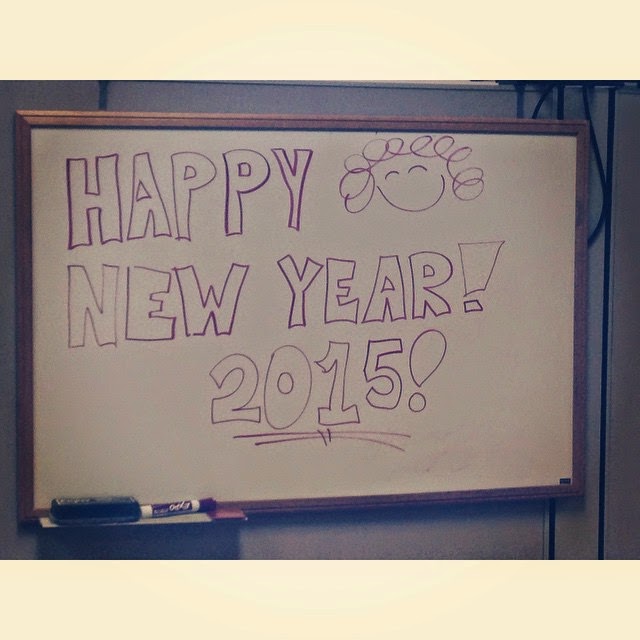 HAPPY
NEW YEAR!
2015!
EXPO